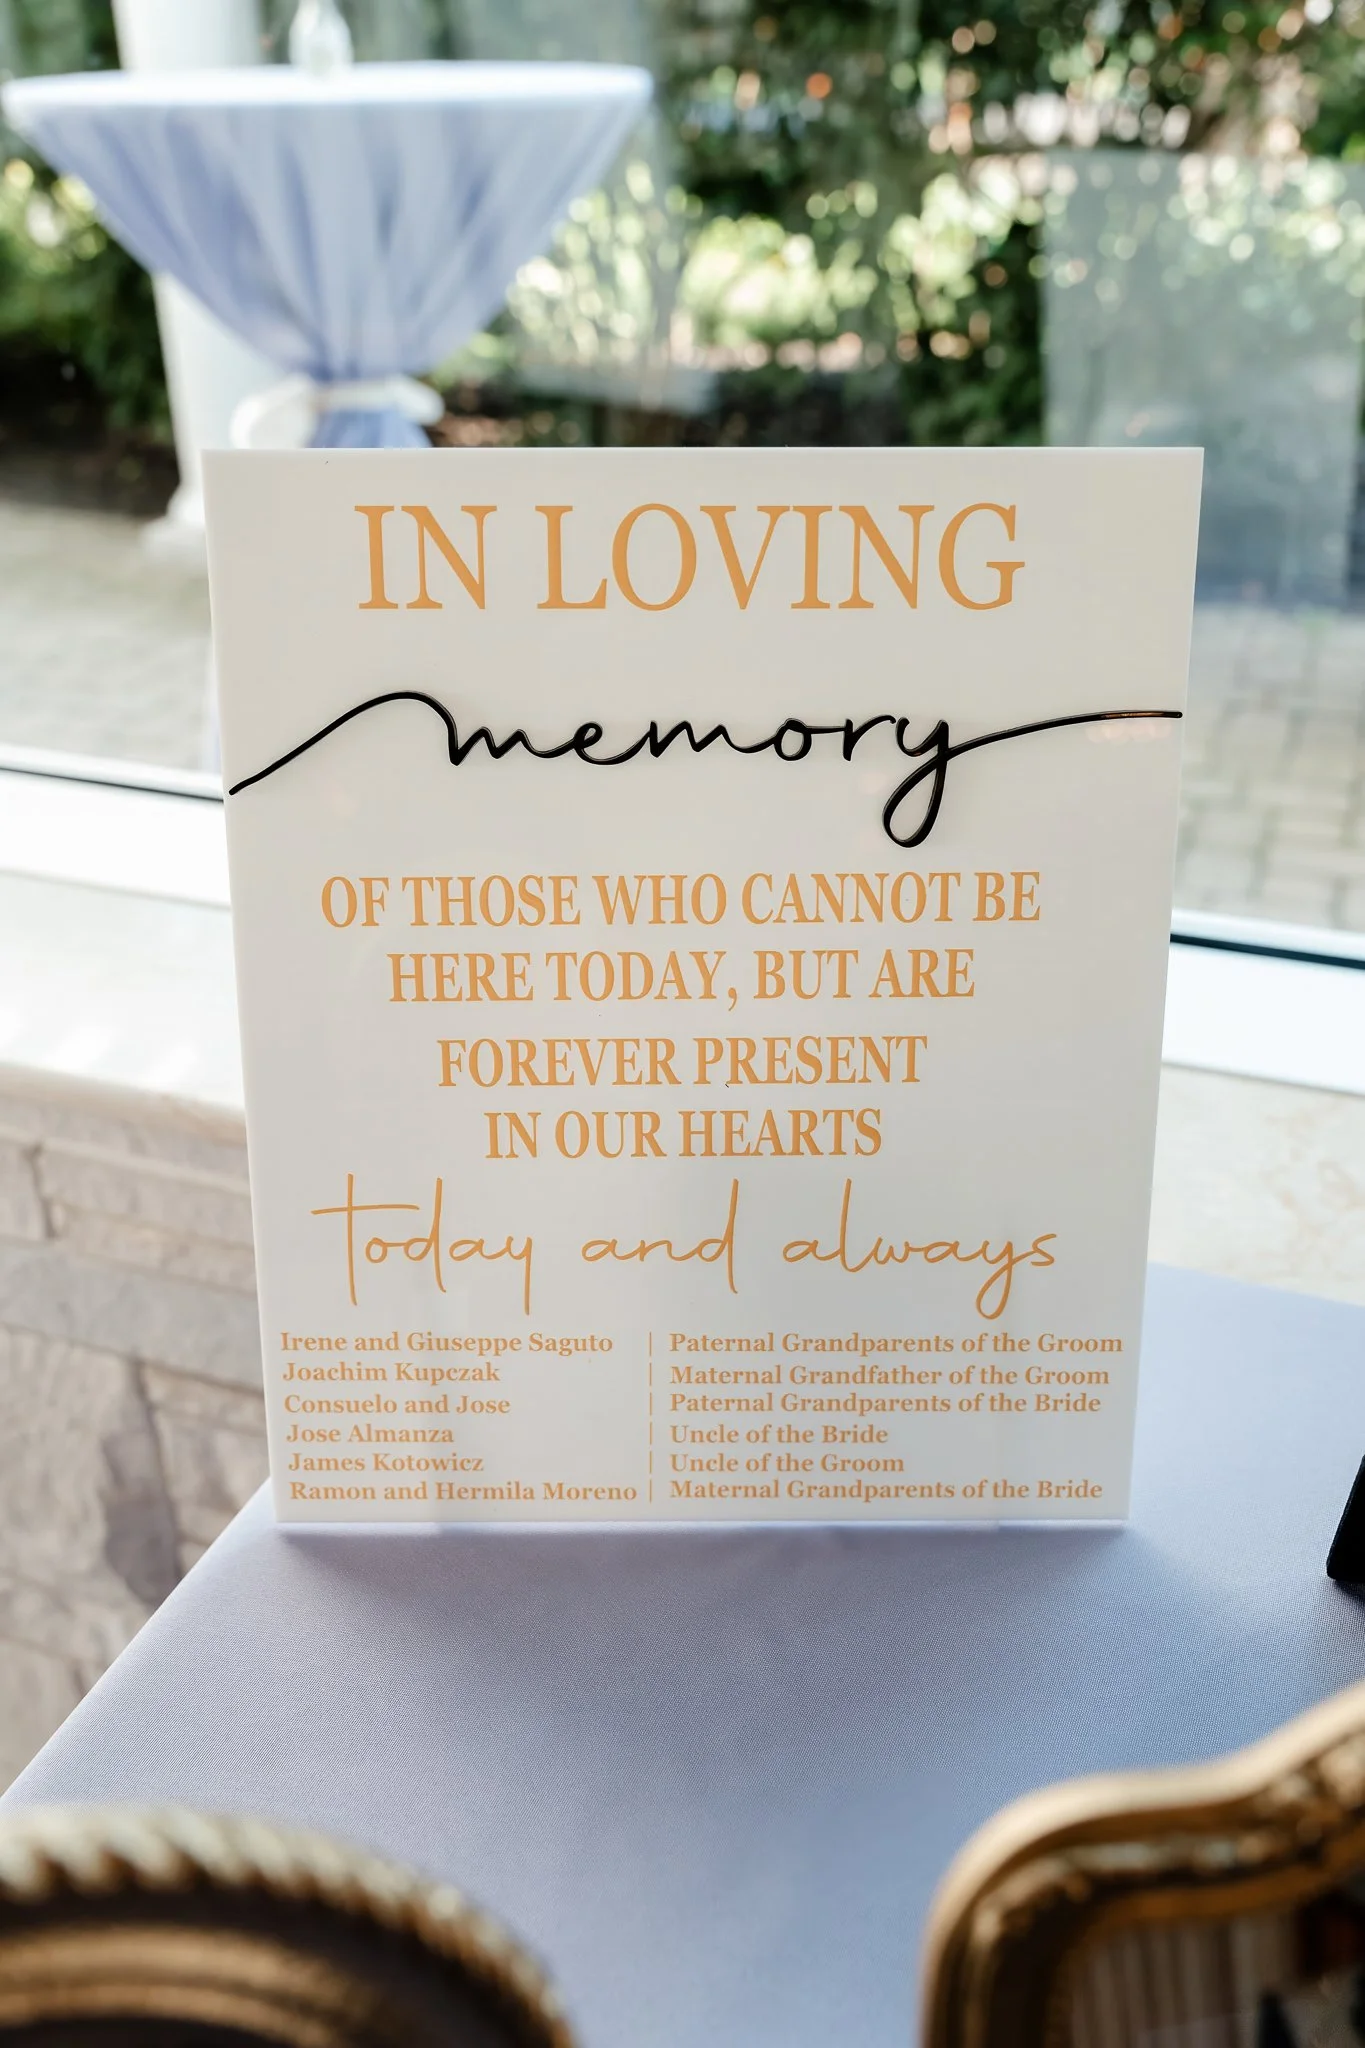 IN LOVING
memory
OF THOSE WHO CANNOT BE
HERE TODAY, BUT ARE
FOREVER PRESENT
IN OUR HEARTS
today and always
Irene and Giuseppe Saguto | Paternal Grandparents of the Groom
Joachim Kupczak | Maternal Grandfather of the Groom
Consuelo and Jose | Paternal Grandparents of the Bride
Jose Almanza | Uncle of the Bride
James Kotowicz | Uncle of the Groom
Ramon and Hermila Moreno | Maternal Grandparents of the Bride